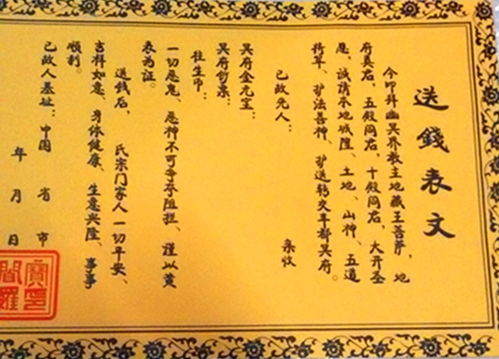 送錢表文
今叩拜幽冥界教主地藏王菩萨，地
府真君，五殿阎君，十殿阎君，大开圣
恩，诚请本地城隍、土地、山神、五道
将军、驴法善神，驴送转交耳都冥府。
已故先人：
亲收
冥府金元宝：
冥府匀票：
往生币：
一切恶鬼、恶神不可争夺阻拦，谨以黄
表为证。
送钱后，氏宗门家人一切平安、
吉祥如意、身体健康、生意兴隆、事事
顺利。
已故人墓址：中国 省 市
年 月 日